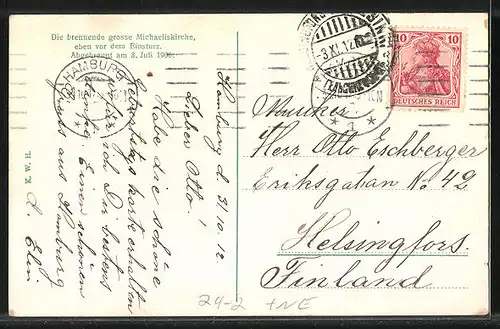 Die brennende grosse Michaeliskirche,
eben vor dem Einsturz.
Abgebrannt am 3. Juli 1906.
HAMBURG
Hamburg d. 31/10. 12
Lieber Otto!
Habe die schöne
Geburtstagskarte erhalten
wofür ich Dir bestens
danke. Einen schönen
Gruss aus Hamburg
K. W. H.
10 10
DEUTSCHES REICH
3.XI.12
Musiker
Herr Otto Eschberger
Eriksgatan No. 42
Helsingfors.
Finland
24-2 +NE